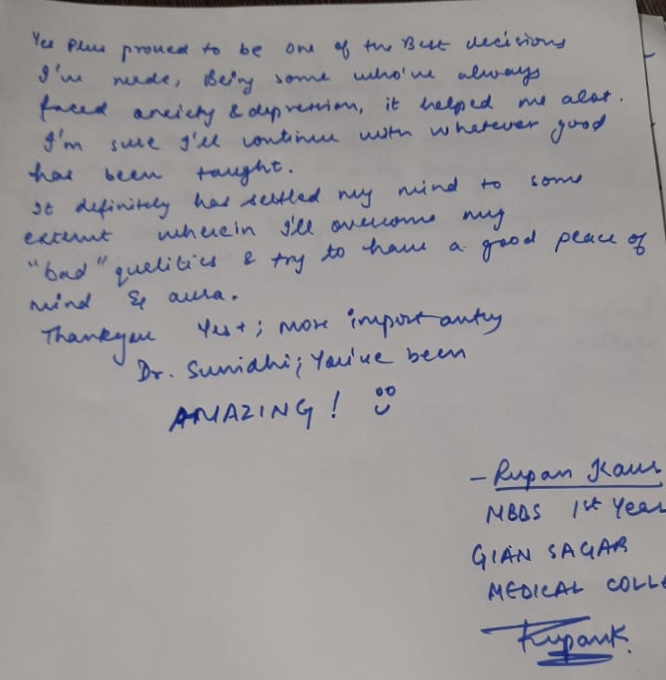 Yes Plus proved to be one of the Best decisions
I've made, Being some who've always
faced anxiety & depression, it helped me alot.
I'm sure I'll continue with whatever good
has been taught.
It definitely has settled my mind to some
extent wherein I'll overcome my
"bad" qualities & try to have a good peace of
mind & aura.
Thankyou Yes+; more importantly
Dr. Sunidhi; You've been
AMAZING!
- Rupan Kaur
MBBS 1st Year
GIAN SAGAR
MEDICAL COLLE
RupanK.